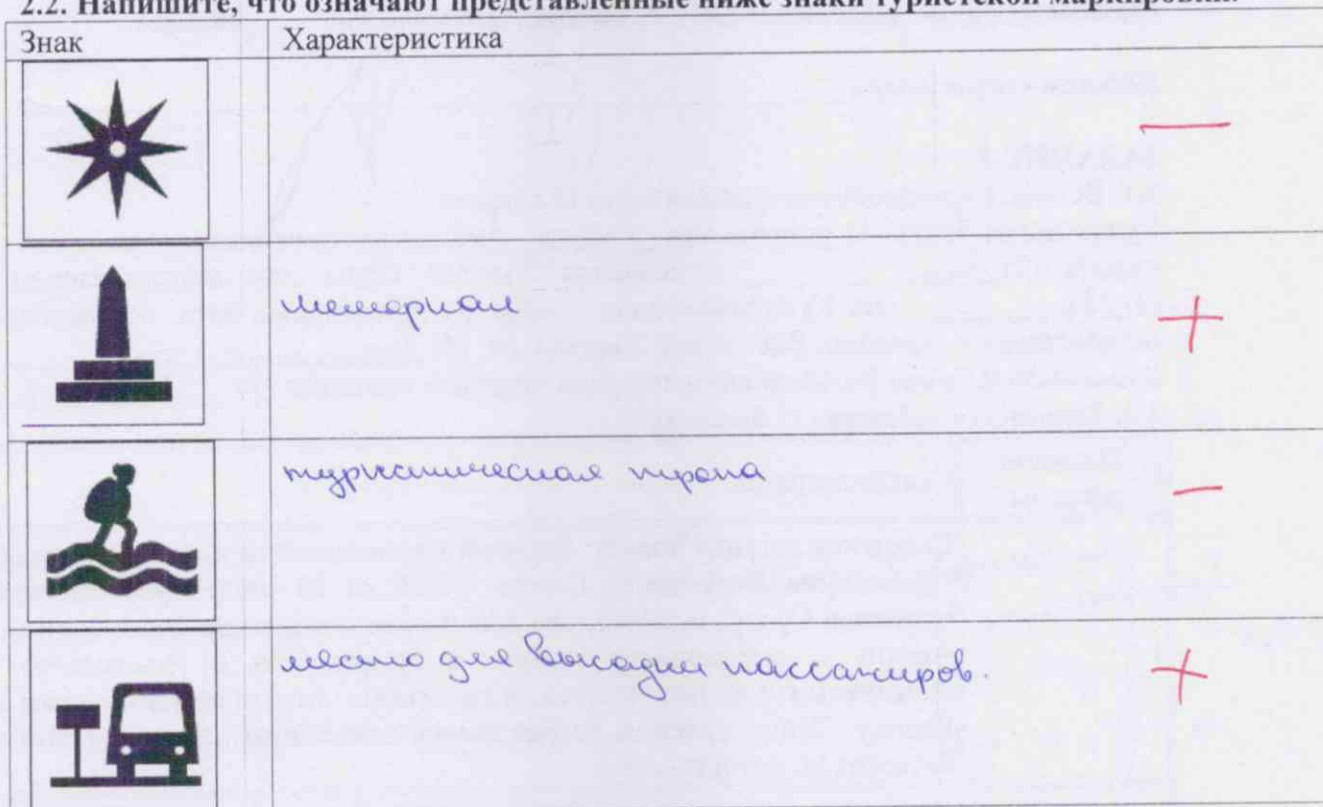 2.2. Напишите, что означают представленные ниже знаки туристской маркировки.
Знак Характеристика
—
мемориал +
туристическая тропа —
место для высадки пассажиров. +